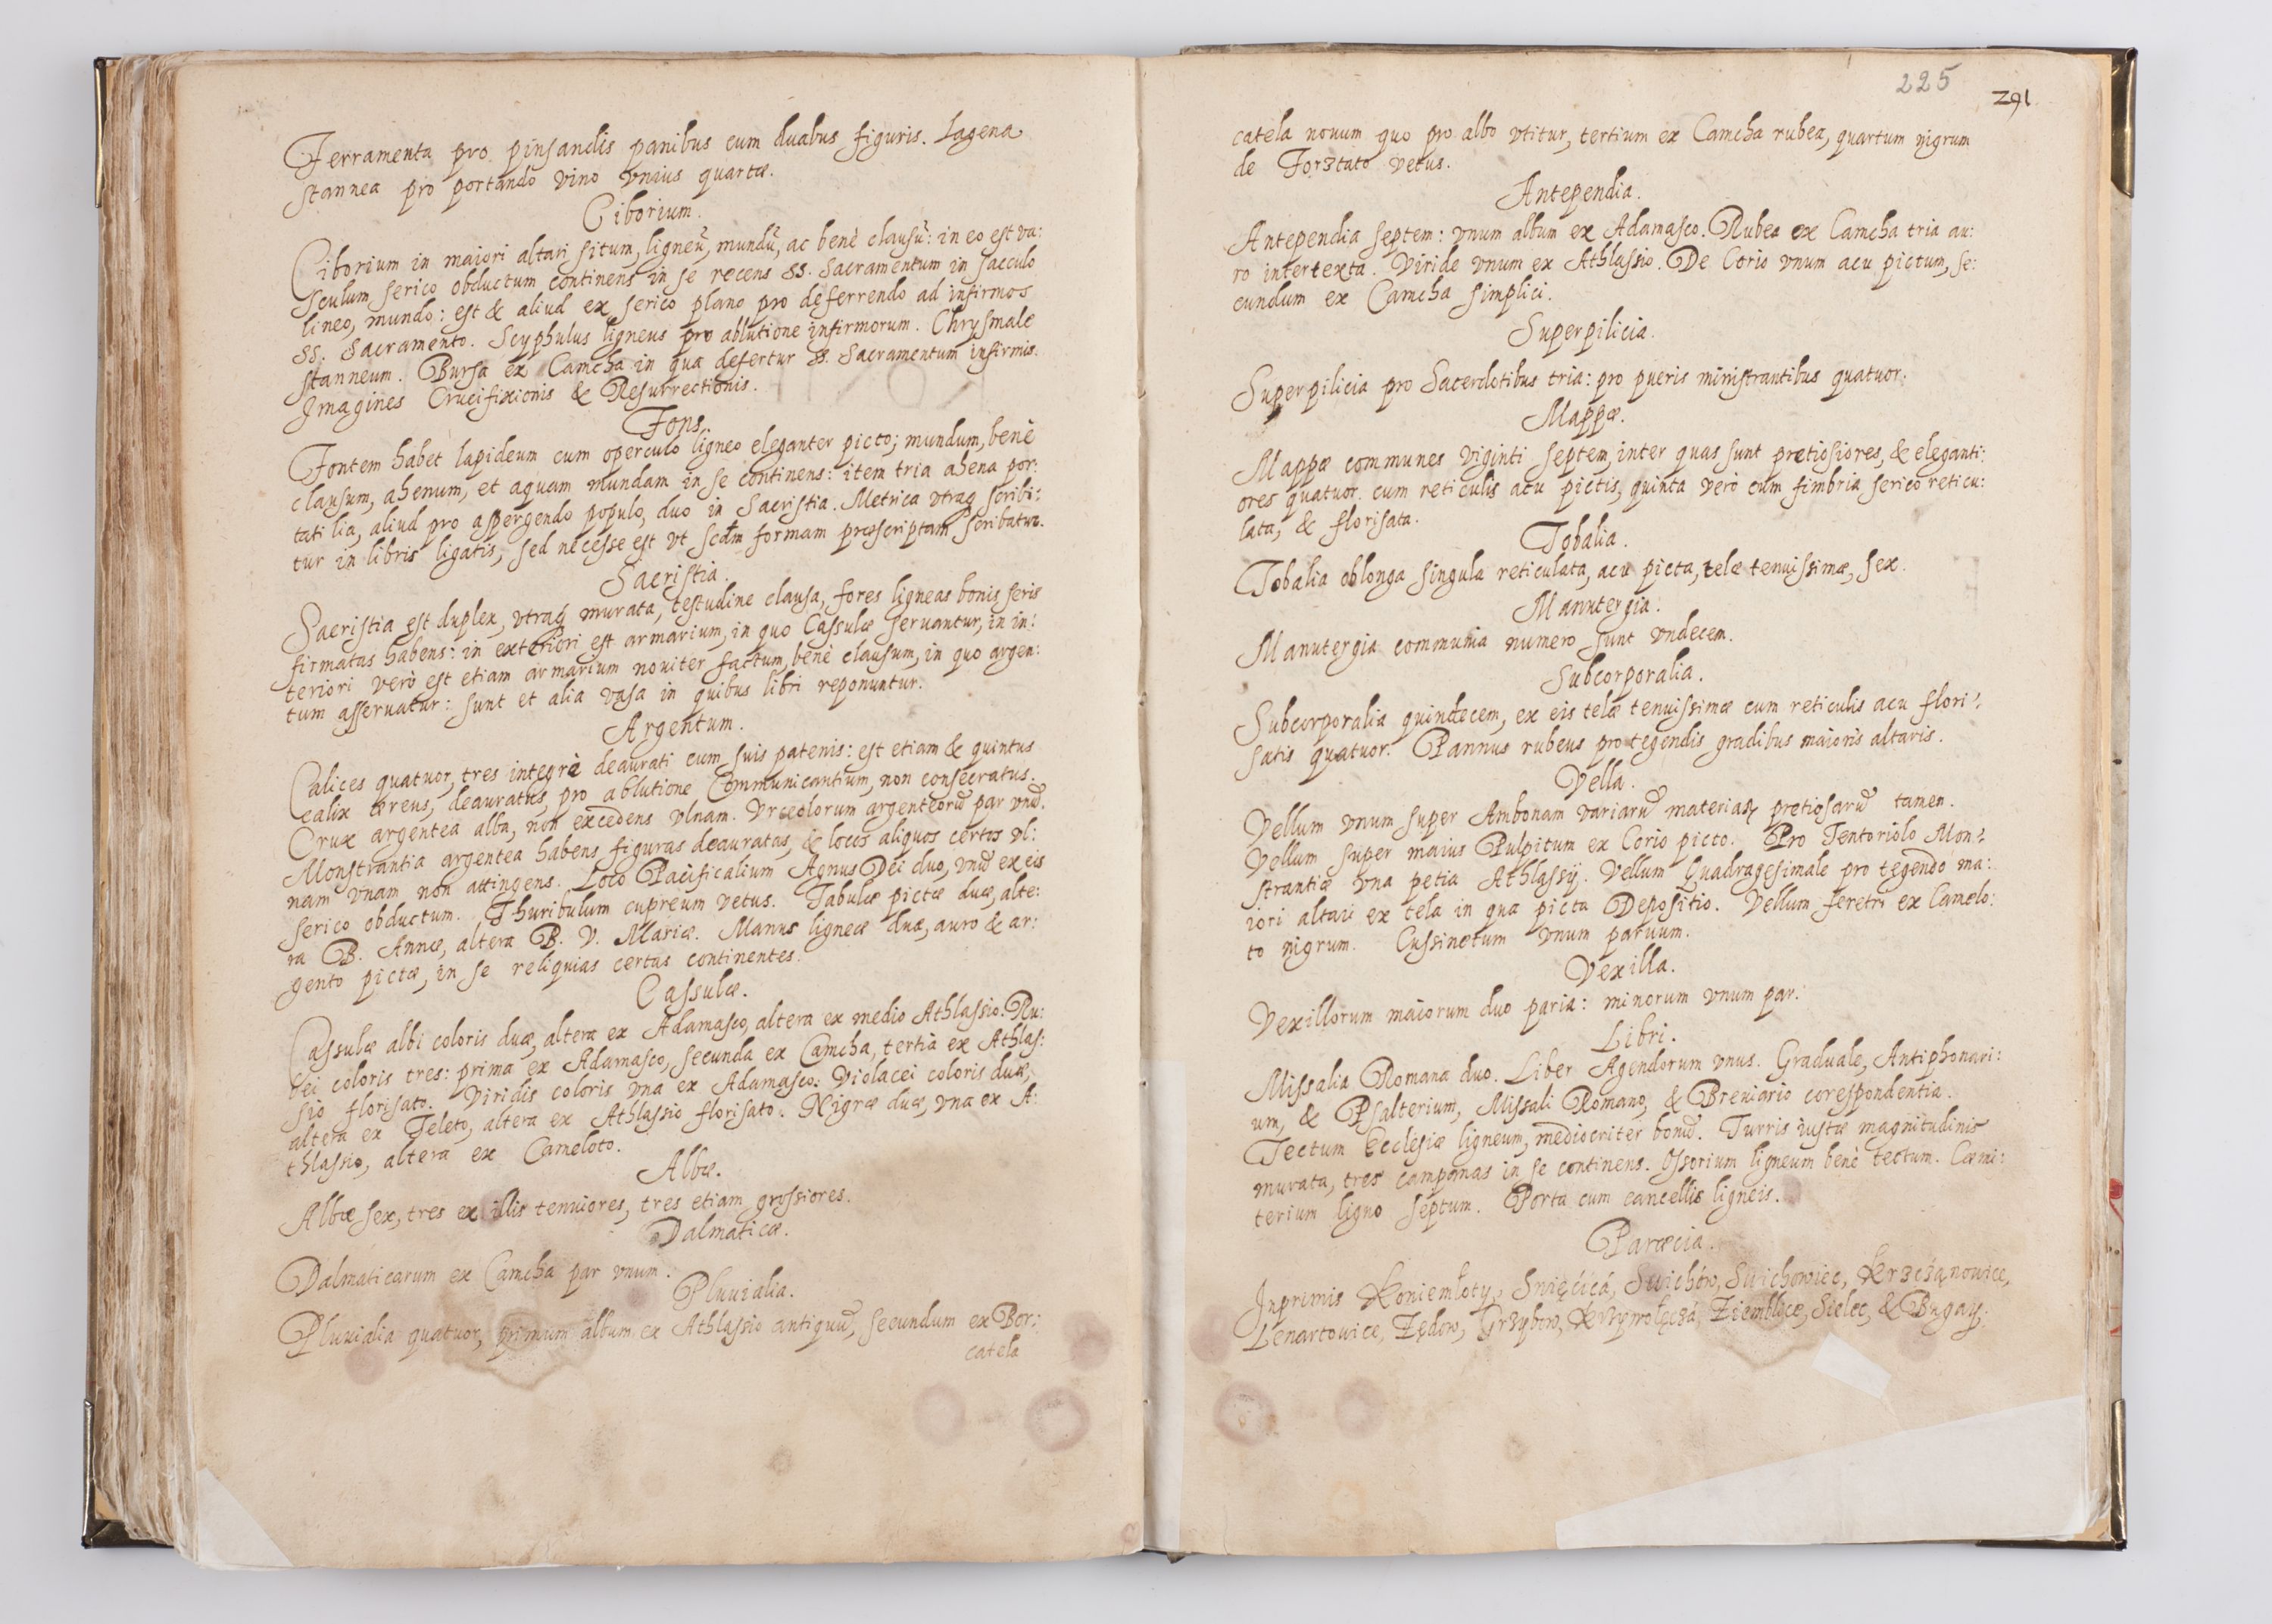 Ferramenta pro pinsandis panibus cum duabus figuris. Lagena
stannea pro portando vino vnius quartæ.
Ciborium.
Ciborium in maiori altari situm, ligneũ, mundũ, ac benè clausũ: in eo est va:
sculum serico obductum continens in se recens SS. Sacramentum in sacculo
lineo, mundo: est & aliud ex serico plano pro deferrendo ad infirmos
SS. Sacramento. Scyphulus ligneus pro ablutione infirmorum. Chrysmale
stanneum. Bursa ex Camcha in qua defertur SS. Sacramentum infirmis.
Imagines Crucifixionis & Resurrectionis.
Fons.
Fontem habet lapideum cum operculo ligneo eleganter picto; mundum, benè
clausum, ahenum, et aquam mundam in se continens: item tria ahena por:
tatilia, aliud pro aspergendo populo, duo in Sacristia. Metrica vtraq scribi:
tur in libris ligatis, sed necesse est vt scdm formam præscriptam scribatur.
Sacristia.
Sacristia est duplex, vtraq murata, testudine clausa, fores ligneas bonis seris
firmatas habens: in exteriori est armarium, in quo Cassulæ seruantur, in in:
teriori verò est etiam armarium nouiter factum, benè clausum, in quo argen:
tum asseruatur: sunt et alia vasa in quibus libri reponuntur.
Argentum.
Calices quatuor, tres integrè deaurati cum suis patenis: est etiam & quintus
calix æreus, deauratus, pro ablutione Communicantium, non consecratus.
Crux argentea alba, non excedens vlnam. Vrceolorum argenteorũ par vnũ.
Monstrantia argentea habens figuras deauratas, & locos aliquos certos vl:
nam vnam non attingens. Loco Pacificalium Agnus Dei duo, vnũ ex eis
serico obductum. Thuribulum cupreum vetus. Tabulæ pictæ duæ, alte:
ra B. Annæ, altera B. V. Mariæ. Manus ligneæ duæ, auro & ar:
gento pictæ, in se reliquias certas continentes.
Cassulæ.
Cassulæ albi coloris duæ, altera ex Adamasco, altera ex medio Athlassio. Ru:
bei coloris tres: prima ex Adamasco, secunda ex Camcha, tertia ex Athlas:
sio florisato. Viridis coloris vna ex Adamasco: Violacei coloris duæ,
altera ex Teleto, altera ex Athlassio florisato. Nigræ duæ, vna ex A:
thlassio, altera ex Cameloto.
Albæ.
Albæ sex, tres ex illis tenuiores, tres etiam grossiores.
Dalmaticæ.
Dalmaticarum ex Camcha par vnum.
Pluuialia.
Pluuialia quatuor, primum album ex Athlassio antiquũ, secundum ex Bor:
catela
225
291
catela nouum quo pro albo vtitur, tertium ex Camcha rubea, quartum nigrum
de Forztato vetus.
Antependia.
Antependia septem: vnum album ex Adamasco. Rubea ex Camcha tria au:
ro intertexta. Viride vnum ex Athlassio. De Corio vnum acu pictum, se:
cundum ex Camcha simplici.
Superpilicia.
Superpilicia pro Sacerdotibus tria: pro pueris ministrantibus quatuor.
Mappæ.
Mappæ communes viginti septem, inter quas sunt pretiosiores, & eleganti:
ores quatuor cum reticulis acu pictis, quinta verò cum fimbria serico reticu:
lata, & florisata.
Tobalia.
Tobalia oblonga singula reticulata, acu picta, telæ tenuissimæ, sex.
Manutergia.
Manutergia communia numero sunt vndecem.
Subcorporalia.
Subcorporalia quindecem, ex eis telæ tenuissimæ cum reticulis acu flori:
satis quatuor. Pannus rubeus pro tegendis gradibus maioris altaris.
Vella.
Vellum vnum super Ambonam variarũ materiaꝝ pretiosarũ tamen.
Vellum super maius Pulpitum ex Corio picto. Pro Tentoriolo Mon:
strantiæ vna petia Athlassij. Vellum Quadragesimale pro tegendo ma:
iori altari ex tela in qua picta Depositio. Vellum feretri ex Camelo:
to nigrum. Cussinetum vnum paruum.
Vexilla.
Vexillorum maiorum duo paria: minorum vnum par.
Libri.
Missalia Romana duo. Liber Agendorum vnus. Graduale, Antiphonari:
um, & Psalterium, Missali Romano, & Breuiario corespondentia.
Tectum Ecclesiæ ligneum, mediocriter bonũ. Turris iustæ magnitudinis
murata, tres campanas in se continens. Ossorium ligneum benè tectum. Cœmi:
terium ligno septum. Porta cum cancellis ligneis.
Parœcia.
Inprimis Koniemłoty, Śnięćića, Swichów, Swichowiec, Krzcżąnowice,
Lenartowice, Zędow, Grzybow, Ziemblice, Sielec, & Bugay.